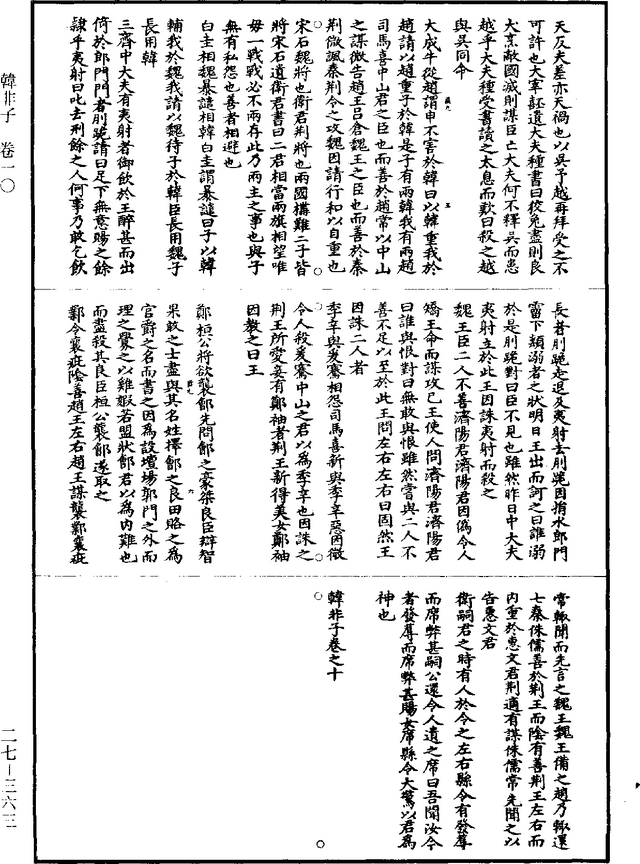 天反夫差亦天禍也以吳予越再拜受之不
可許也太宰嚭遺大夫種書曰狡兔盡則良
犬烹敵國滅則謀臣亡大夫何不釋吳而患
越乎大夫種受書讀之太息而歎曰殺之越
與吳同命
大成牛從趙謂申不害於韓曰以韓重我於
趙請以趙重子於韓是子有兩韓我有兩趙
司馬喜中山君之臣也而善於趙常以中山
之謀微告趙王呂倉魏王之臣也而善於秦
荆微諷秦荆令之攻魏因請行和以自重也
宋石魏將也衛君荆將也兩國構難二子皆
將宋石遺衛君書曰二君相當兩旗相望唯
毋一戰戰必不兩存此乃兩主之事也與子
無有私怨也善者相避也
白圭相魏暴譴相韓白圭謂暴譴曰子以韓
輔我於魏我請以魏待子於韓臣長用魏子
長用韓
三齊中大夫有夷射者御飲於王醉甚而出
倚於郎門門者刖跪請曰足下無意賜之餘
隸乎夷射曰叱去刑餘之人何事乃敢乞飲
長者刖跪走退及夷射去刖跪因捐水郎門
霤下類溺者之狀明日王出而訶之曰誰溺
於是刖跪對曰臣不見也雖然昨日中大夫
夷射立於此王因誅夷射而殺之
魏王臣二人不善濟陽君濟陽君因偽令人
矯王命而謀攻己王使人問濟陽君濟陽君
曰誰與恨對曰無敢與恨雖然嘗與二人不
善不足以至於此王問左右左右曰固然王
因誅二人者
季辛與爰騫相怨司馬喜新與季辛惡因微
令人殺爰騫中山之君以為季辛也因誅之
荆王所愛妾有鄭袖者荆王新得美女鄭袖
因教之曰王
鄭桓公將欲襲鄶先問鄶之豪桀良臣辯智
果敢之士盡與其名姓擇鄶之良田賂之為
官爵之名而書之因為設壇場郭門之外而
理之釁之以雞豭若盟狀鄶君以為內難也
而盡殺其良臣桓公襲鄶遂取之
鄴令襄疵陰善趙王左右趙王謀襲鄴襄疵
常輒聞而先言之魏王魏王備之趙乃輒還
七秦侏儒善於荆王而陰有善荆王左右而
內重於惠文君荆適有謀侏儒常先聞之以
告惠文君
衛嗣君之時有人於令之左右縣令有發蓐
而席弊甚嗣公還令人遺之席曰吾聞汝今
者發蓐而席弊甚賜汝席縣令大驚以君為
神也
韓非子卷之十
韓非子 卷一〇
二七－三六三